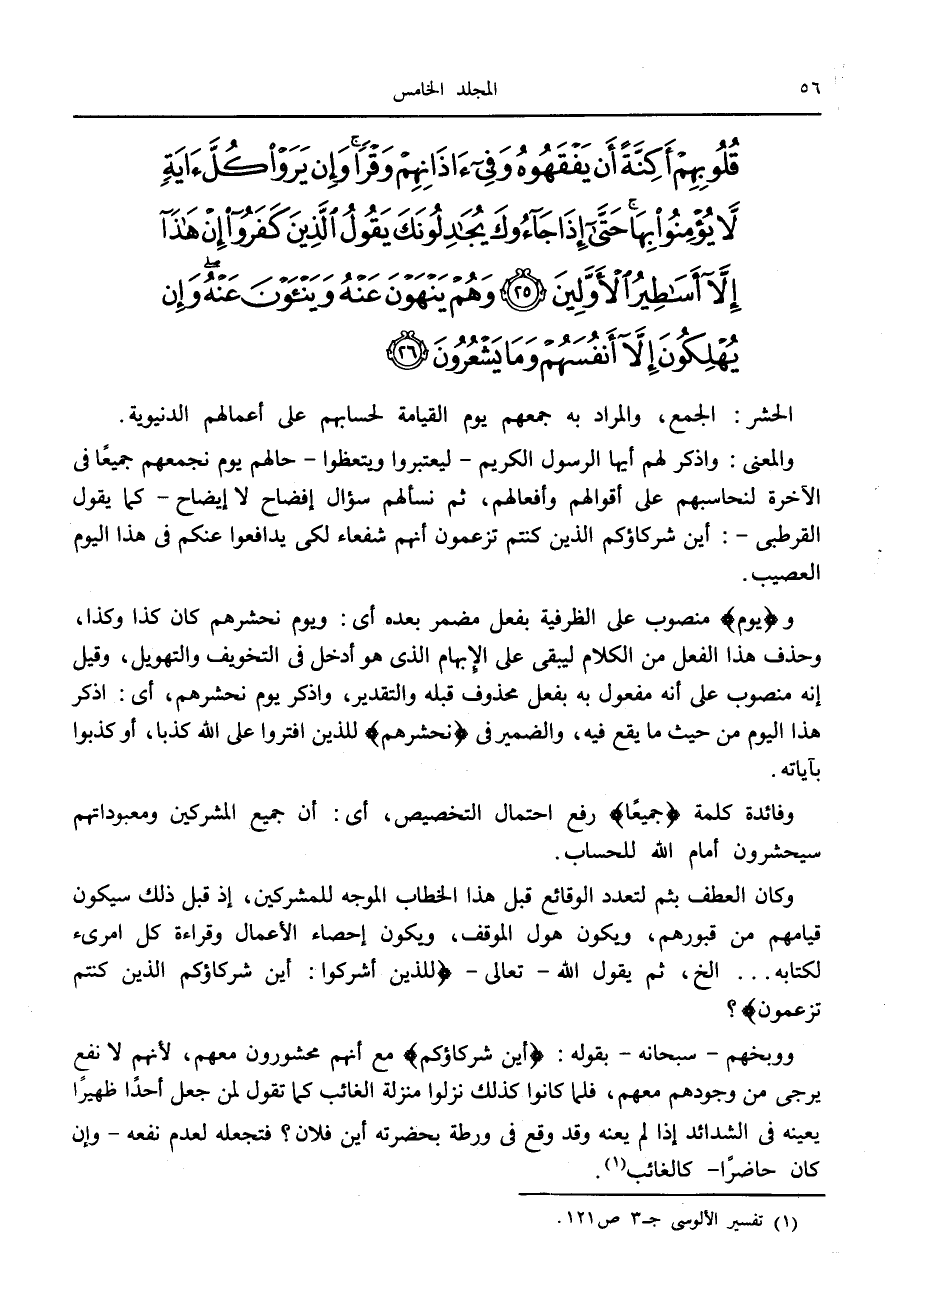 ٥٦
المجلد الخامس
قُلُوبِهِمْ أَكِنَّةً أَن يَفْقَهُوهُ وَفِىٓ ءَاذَانِهِمْ وَقْرًا ۚ وَإِن يَرَوْا۟ كُلَّ ءَايَةٍ
لَّا يُؤْمِنُوا۟ بِهَا ۚ حَتَّىٰٓ إِذَا جَآءُوكَ يُجَٰدِلُونَكَ يَقُولُ ٱلَّذِينَ كَفَرُوٓا۟ إِنْ هَٰذَآ
إِلَّآ أَسَٰطِيرُ ٱلْأَوَّلِينَ ﴿٢٥﴾ وَهُمْ يَنْهَوْنَ عَنْهُ وَيَنْـَٔوْنَ عَنْهُ ۖ وَإِن
يُهْلِكُونَ إِلَّآ أَنفُسَهُمْ وَمَا يَشْعُرُونَ ﴿٢٦﴾
الحشر : الجمع، والمراد به جمعهم يوم القيامة لحسابهم على أعمالهم الدنيوية .
والمعنى : واذكر لهم أيها الرسول الكريم – ليعتبروا ويتعظوا – حالهم يوم نجمعهم جميعًا فى
الآخرة لنحاسبهم على أقوالهم وأفعالهم، ثم نسألهم سؤال إفضاح لا إيضاح – كما يقول
القرطبى – : أين شركاؤكم الذين كنتم تزعمون أنهم شفعاء لكى يدافعوا عنكم فى هذا اليوم
العصيب .
و ﴿يوم﴾ منصوب على الظرفية بفعل مضمر بعده أى : ويوم نحشرهم كان كذا وكذا،
وحذف هذا الفعل من الكلام ليبقى على الإبهام الذى هو أدخل فى التخويف والتهويل، وقيل
إنه منصوب على أنه مفعول به بفعل محذوف قبله والتقدير، واذكر يوم نحشرهم، أى : اذكر
هذا اليوم من حيث ما يقع فيه، والضمير فى ﴿نحشرهم﴾ للذين افتروا على الله كذبا، أو كذبوا
بآياته .
وفائدة كلمة ﴿جميعًا﴾ رفع احتمال التخصيص، أى : أن جميع المشركين ومعبوداتهم
سيحشرون أمام الله للحساب .
وكان العطف بثم لتعدد الوقائع قبل هذا الخطاب الموجه للمشركين، إذ قبل ذلك سيكون
قيامهم من قبورهم، ويكون هول الموقف، ويكون إحصاء الأعمال وقراءة كل امرىء
لكتابه . . . الخ، ثم يقول الله – تعالى – ﴿للذين أشركوا : أين شركاؤكم الذين كنتم
تزعمون﴾ ؟
ووبخهم – سبحانه – بقوله : ﴿أين شركاؤكم﴾ مع أنهم محشورون معهم، لأنهم لا نفع
يرجى من وجودهم معهم، فلما كانوا كذلك نزلوا منزلة الغائب كما تقول لمن جعل أحدًا ظهيرًا
يعينه فى الشدائد إذا لم يعنه وقد وقع فى ورطة بحضرته أين فلان ؟ فتجعله لعدم نفعه – وإن
كان حاضرًا– كالغائب(١) .
(١) تفسير الألوسى جـ٣ ص١٢١ .